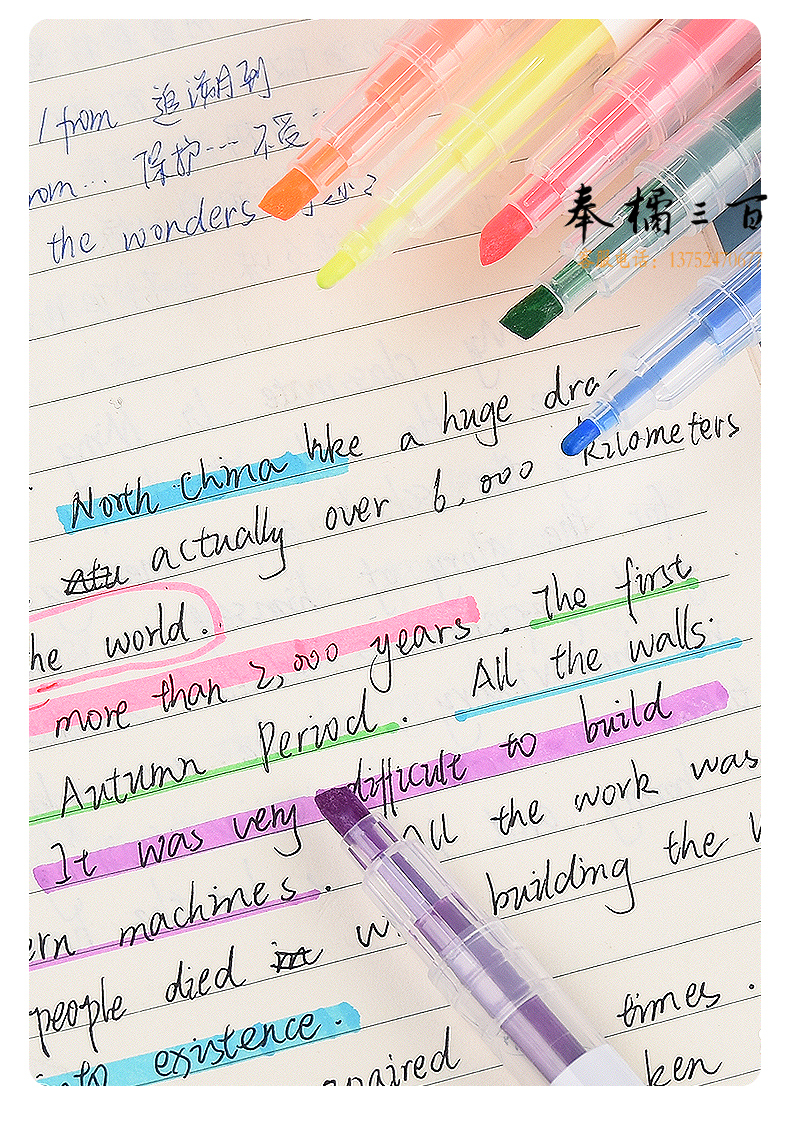 / from 追溯到
rom... 保护...不受
the wonders
奉橘三百
客服电话：13752470677
North China like a huge dra
actually over 6,000 kilometers
he world.
more than 2,000 years. The first
Autumn Period. All the walls.
It was very difficult to build
all the work was
ern machines.
building the
people died in w
into existence. times.
paired ken